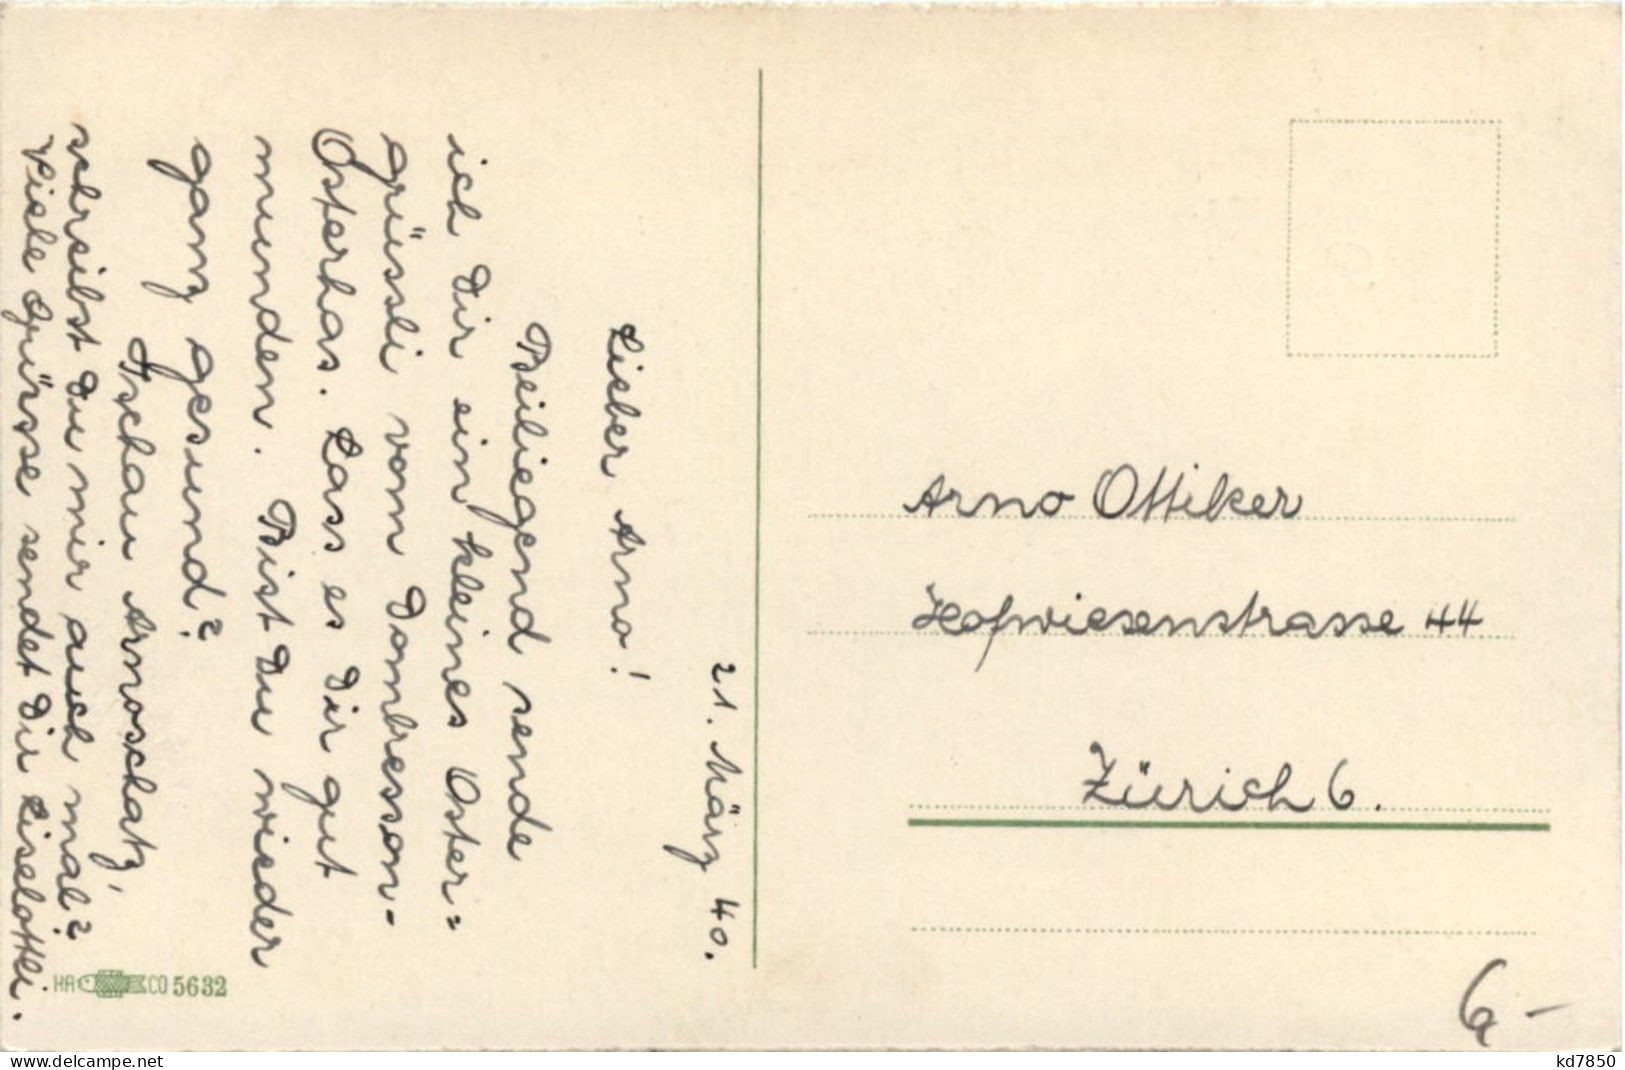 21. März 40.
Lieber Arno!
Beiliegend sende
ich Dir ein kleines Oster=
grüssli vom Dombresson-
Osterhas. Lass es Dir gut
munden. Bist Du wieder
ganz gesund?
Tschau Arnoschatz,
schreibst Du mir auch mal?
Viele Grüsse sendet Dir Liselottli.
HA CO 5632
Arno Ottiker
Hofwiesenstrasse 44
Zürich 6.
6.-
delcampe.net
kd7850